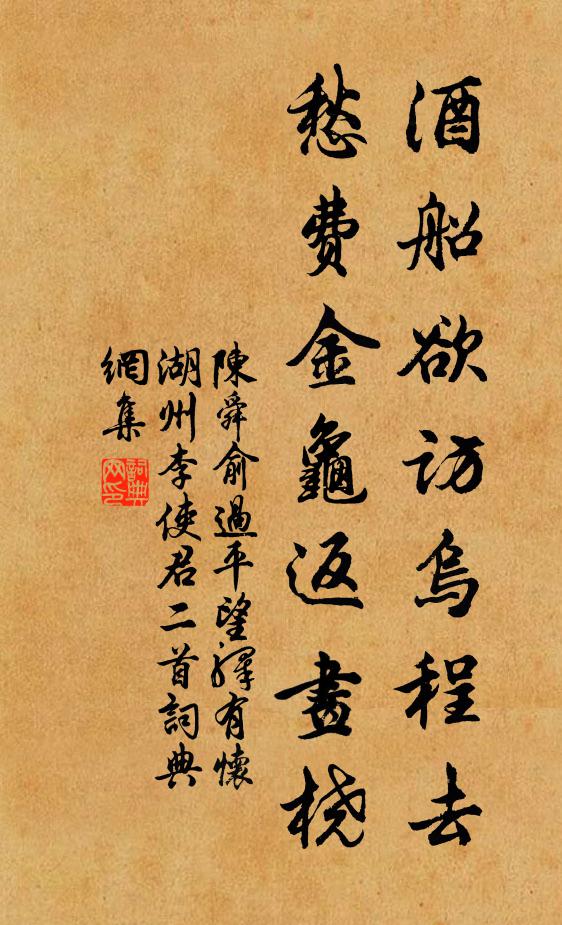 酒船欲訪烏程去
愁費金龜返畫橈
陳舜俞過平望驛有懷
湖州李使君二首詞典
網集
詞典
网印